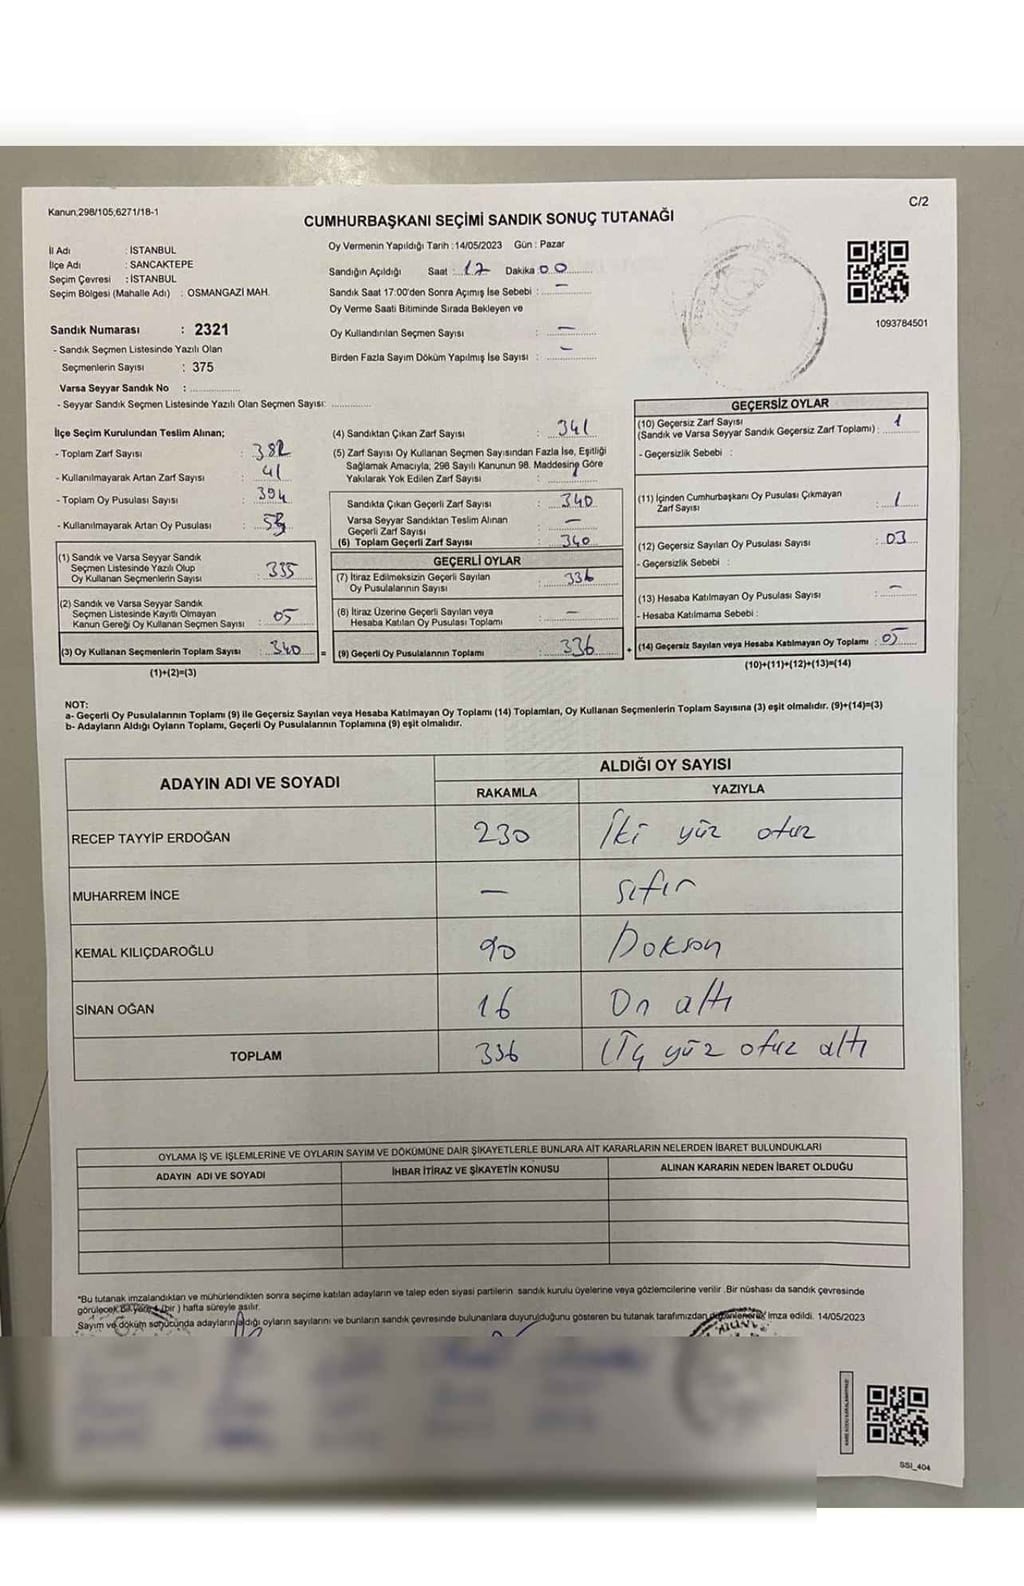 Kanun,298/105,6271/18-1
C/2
CUMHURBAŞKANI SEÇİMİ SANDIK SONUÇ TUTANAĞI
İl Adı : İSTANBUL
İlçe Adı : SANCAKTEPE
Seçim Çevresi : İSTANBUL
Seçim Bölgesi (Mahalle Adı) : OSMANGAZİ MAH.
Sandık Numarası : 2321
- Sandık Seçmen Listesinde Yazılı Olan
Seçmenlerin Sayısı : 375
Varsa Seyyar Sandık No : ..............
- Seyyar Sandık Seçmen Listesinde Yazılı Olan Seçmen Sayısı: ............
Oy Vermenin Yapıldığı Tarih :14/05/2023 Gün : Pazar
Sandığın Açıldığı Saat : 17 Dakika 00
Sandık Saat 17:00'den Sonra Açımış İse Sebebi : —
Oy Verme Saati Bitiminde Sırada Bekleyen ve
Oy Kullandırılan Seçmen Sayısı : —
Birden Fazla Sayım Döküm Yapılmış İse Sayısı : —
1093784501
İlçe Seçim Kurulundan Teslim Alınan;
- Toplam Zarf Sayısı : 382
- Kullanılmayarak Artan Zarf Sayısı : 41
- Toplam Oy Pusulası Sayısı : 394
- Kullanılmayarak Artan Oy Pusulası :
(1) Sandık ve Varsa Seyyar Sandık
Seçmen Listesinde Yazılı Olup
Oy Kullanan Seçmenlerin Sayısı : 335
(2) Sandık ve Varsa Seyyar Sandık
Seçmen Listesinde Kayıtlı Olmayan
Kanun Gereği Oy Kullanan Seçmen Sayısı : 05
(3) Oy Kullanan Seçmenlerin Toplam Sayısı : 340 =
(1)+(2)=(3)
(4) Sandıktan Çıkan Zarf Sayısı : 341
(5) Zarf Sayısı Oy Kullanan Seçmen Sayısından Fazla İse, Eşitliği
Sağlamak Amacıyla; 298 Sayılı Kanunun 98. Maddesine Göre
Yakılarak Yok Edilen Zarf Sayısı : 1
Sandıkta Çıkan Geçerli Zarf Sayısı : 340
Varsa Seyyar Sandıktan Teslim Alınan
Geçerli Zarf Sayısı : —
(6) Toplam Geçerli Zarf Sayısı : 340
GEÇERLİ OYLAR
(7) İtiraz Edilmeksizin Geçerli Sayılan
Oy Pusulalarının Sayısı : 336
(8) İtiraz Üzerine Geçerli Sayılan veya
Hesaba Katılan Oy Pusulası Toplamı : —
(9) Geçerli Oy Pusulalarının Toplamı : 336 +
GEÇERSİZ OYLAR
(10) Geçersiz Zarf Sayısı
(Sandık ve Varsa Seyyar Sandık Geçersiz Zarf Toplamı) : 1
- Geçersizlik Sebebi :
(11) İçinden Cumhurbaşkanı Oy Pusulası Çıkmayan
Zarf Sayısı : 1
(12) Geçersiz Sayılan Oy Pusulası Sayısı : 03
- Geçersizlik Sebebi :
(13) Hesaba Katılmayan Oy Pusulası Sayısı : —
- Hesaba Katılmama Sebebi :
(14) Geçersiz Sayılan veya Hesaba Katılmayan Oy Toplamı : 05
(10)+(11)+(12)+(13)=(14)
NOT:
a- Geçerli Oy Pusulalarının Toplamı (9) ile Geçersiz Sayılan veya Hesaba Katılmayan Oy Toplamı (14) Toplamları, Oy Kullanan Seçmenlerin Toplam Sayısına (3) eşit olmalıdır. (9)+(14)=(3)
b- Adayların Aldığı Oyların Toplamı, Geçerli Oy Pusulalarının Toplamına (9) eşit olmalıdır.
ADAYIN ADI VE SOYADI
ALDIĞI OY SAYISI
RAKAMLA YAZIYLA
RECEP TAYYİP ERDOĞAN 230 İki yüz otuz
MUHARREM İNCE — sıfır
KEMAL KILIÇDAROĞLU 90 Doksan
SİNAN OĞAN 16 On altı
TOPLAM 336 Üç yüz otuz altı
OYLAMA İŞ VE İŞLEMLERİNE VE OYLARIN SAYIM VE DÖKÜMÜNE DAİR ŞİKAYETLERLE BUNLARA AİT KARARLARIN NELERDEN İBARET BULUNDUKLARI
ADAYIN ADI VE SOYADI İHBAR İTİRAZ VE ŞİKAYETİN KONUSU ALINAN KARARIN NEDEN İBARET OLDUĞU
"Bu tutanak imzalandıktan ve mühürlendikten sonra seçime katılan adayların ve talep eden siyasi partilerin sandık kurulu üyelerine veya gözlemcilerine verilir .Bir nüshası da sandık çevresinde
görülecek bir yere 1 (bir ) hafta süreyle asılır.
Sayım ve döküm sonucunda adayların aldığı oyların sayılarını ve bunların sandık çevresinde bulunanlara duyurulduğunu gösteren bu tutanak tarafımızdan düzenlenerek imza edildi. 14/05/2023
SSI_404